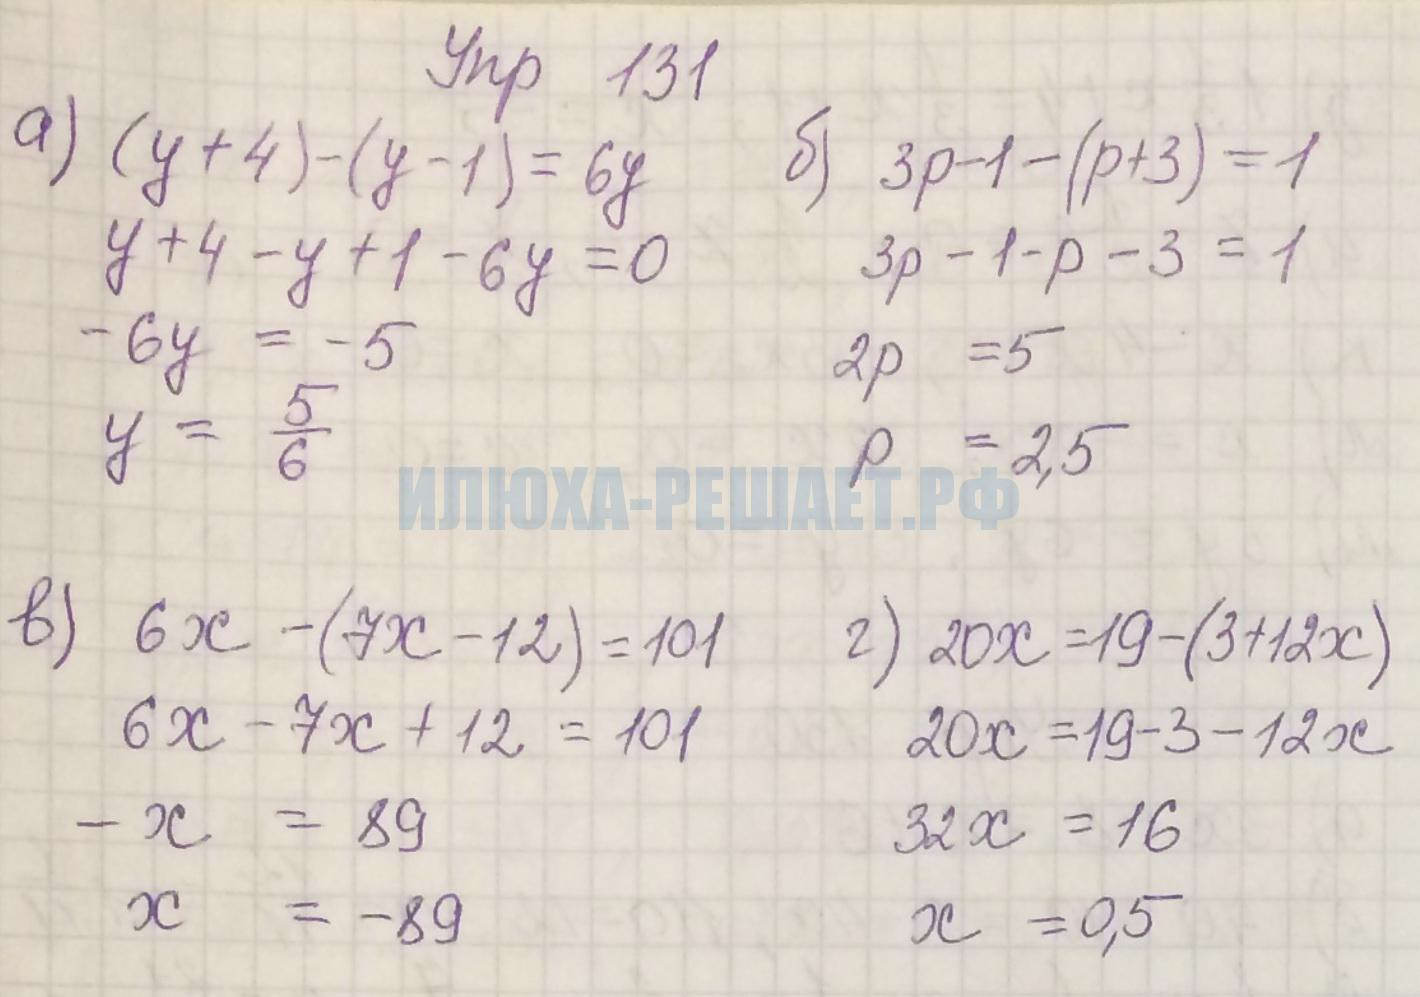 Упр 131
а) (y + 4) - (y - 1) = 6y
y + 4 - y + 1 - 6y = 0
-6y = -5
y = 5/6
б) 3p - 1 - (p + 3) = 1
3p - 1 - p - 3 = 1
2p = 5
p = 2,5
ИЛЮХА-РЕШАЕТ.РФ
в) 6x - (7x - 12) = 101
6x - 7x + 12 = 101
- x = 89
x = -89
г) 20x = 19 - (3 + 12x)
20x = 19 - 3 - 12x
32x = 16
x = 0,5